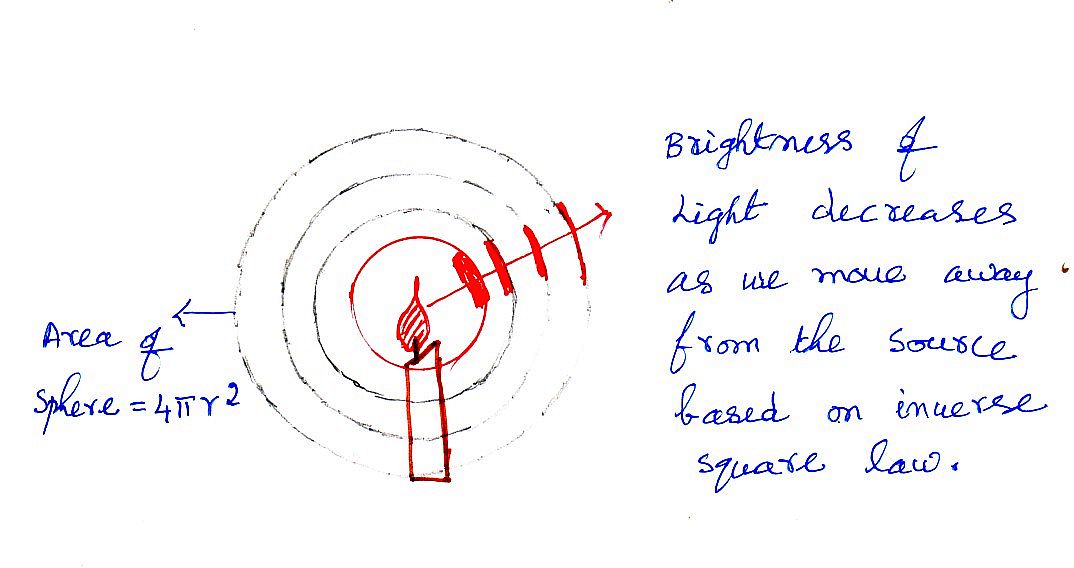 Area of
Sphere = 4πr²
Brightness of
Light decreases
as we move away
from the source
based on inverse
square law.